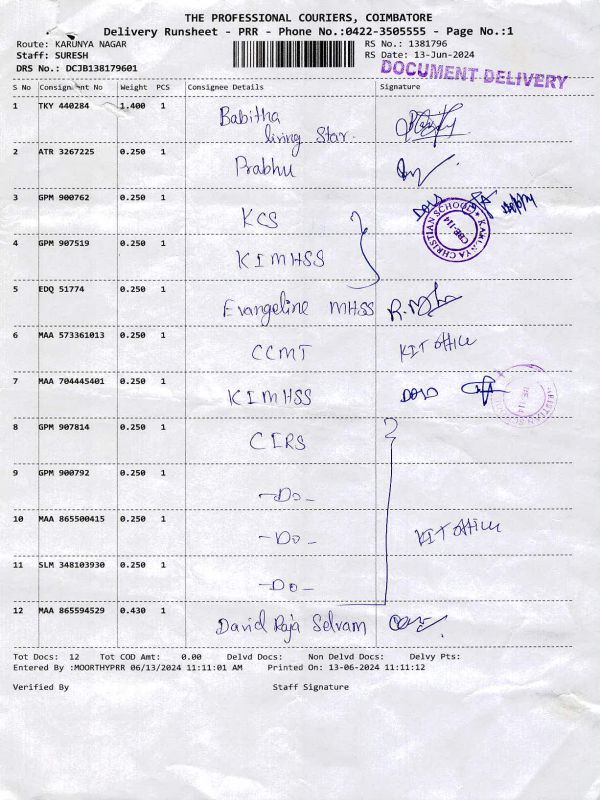 THE PROFESSIONAL COURIERS, COIMBATORE
Delivery Runsheet - PRR - Phone No.:0422-3505555 - Page No.:1
Route: KARUNYA NAGAR RS No.: 1381796
Staff: SURESH RS Date: 13-Jun-2024
DRS No.: DCJB138179601
DOCUMENT DELIVERY
S No Consignment No Weight PCS Consignee Details Signature
1 TKY 440284 1.400 1 Babitha
living Star.
2 ATR 3267225 0.250 1 Prabhu
3 GPM 900762 0.250 1 KCS
KARUNYA CHRISTIAN SCHOOL
CBE-114
4 GPM 907519 0.250 1 KIMHSS
5 EDQ 51774 0.250 1 Evangeline MHSS
6 MAA 573361013 0.250 1 CCMT KIT office
7 MAA 704445401 0.250 1 KIMHSS
8 GPM 907814 0.250 1 CIRS
9 GPM 900792 0.250 1 -Do-
10 MAA 865500415 0.250 1 -Do- KIT office
11 SLM 348103930 0.250 1 -Do-
12 MAA 865594529 0.430 1 David Raja Selvam
Tot Docs: 12 Tot COD Amt: 0.00 Delvd Docs: Non Delvd Docs: Delvy Pts:
Entered By :MOORTHYPRR 06/13/2024 11:11:01 AM Printed On: 13-06-2024 11:11:12
Verified By Staff Signature